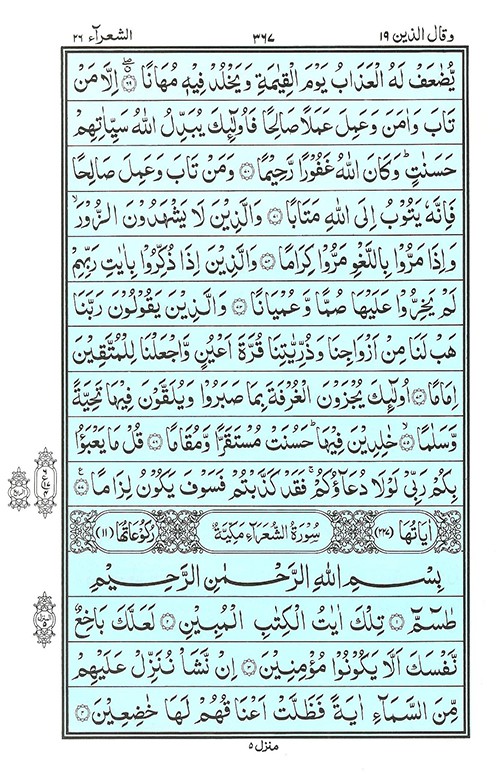 وقال الذين ١٩ ٣٦٧ الشعرآء ٢٦
يُّضٰعَفْ لَهُ الْعَذَابُ يَوْمَ الْقِيٰمَةِ وَيَخْلُدْ فِيْهٖ مُهَانًا ۝٦٩ اِلَّا مَنْ
تَابَ وَاٰمَنَ وَعَمِلَ عَمَلًا صَالِحًا فَاُولٰٓئِكَ يُبَدِّلُ اللّٰهُ سَيِّاٰتِهِمْ
حَسَنٰتٍ ؕ وَكَانَ اللّٰهُ غَفُوْرًا رَّحِيْمًا ۝٧٠ وَمَنْ تَابَ وَعَمِلَ صَالِحًا
فَاِنَّهٗ يَتُوْبُ اِلَى اللّٰهِ مَتَابًا ۝٧١ وَالَّذِيْنَ لَا يَشْهَدُوْنَ الزُّوْرَ ۙ
وَاِذَا مَرُّوْا بِاللَّغْوِ مَرُّوْا كِرَامًا ۝٧٢ وَالَّذِيْنَ اِذَا ذُكِّرُوْا بِاٰيٰتِ رَبِّهِمْ
لَمْ يَخِرُّوْا عَلَيْهَا صُمًّا وَّعُمْيَانًا ۝٧٣ وَالَّذِيْنَ يَقُوْلُوْنَ رَبَّنَا
هَبْ لَنَا مِنْ اَزْوَاجِنَا وَذُرِّيّٰتِنَا قُرَّةَ اَعْيُنٍ وَّاجْعَلْنَا لِلْمُتَّقِيْنَ
اِمَامًا ۝٧٤ اُولٰٓئِكَ يُجْزَوْنَ الْغُرْفَةَ بِمَا صَبَرُوْا وَيُلَقَّوْنَ فِيْهَا تَحِيَّةً
وَّسَلٰمًا ۝٧٥ خٰلِدِيْنَ فِيْهَا ؕ حَسُنَتْ مُسْتَقَرًّا وَّمُقَامًا ۝٧٦ قُلْ مَا يَعْبَؤُا
بِكُمْ رَبِّيْ لَوْلَا دُعَآؤُكُمْ ۚ فَقَدْ كَذَّبْتُمْ فَسَوْفَ يَكُوْنُ لِزَامًا ۝٧٧
اٰيَاتُهَا (٢٢٧) سُوْرَةُ الشُّعَرَآءِ مَكِّيَّةٌ رُكُوْعَاتُهَا (١١)
بِسْمِ اللّٰهِ الرَّحْمٰنِ الرَّحِيْمِ
طٰسٓمّٓ ۝١ تِلْكَ اٰيٰتُ الْكِتٰبِ الْمُبِيْنِ ۝٢ لَعَلَّكَ بَاخِعٌ
نَّفْسَكَ اَلَّا يَكُوْنُوْا مُؤْمِنِيْنَ ۝٣ اِنْ نَّشَاْ نُنَزِّلْ عَلَيْهِمْ
مِّنَ السَّمَآءِ اٰيَةً فَظَلَّتْ اَعْنَاقُهُمْ لَهَا خٰضِعِيْنَ ۝٤
منزل ٥